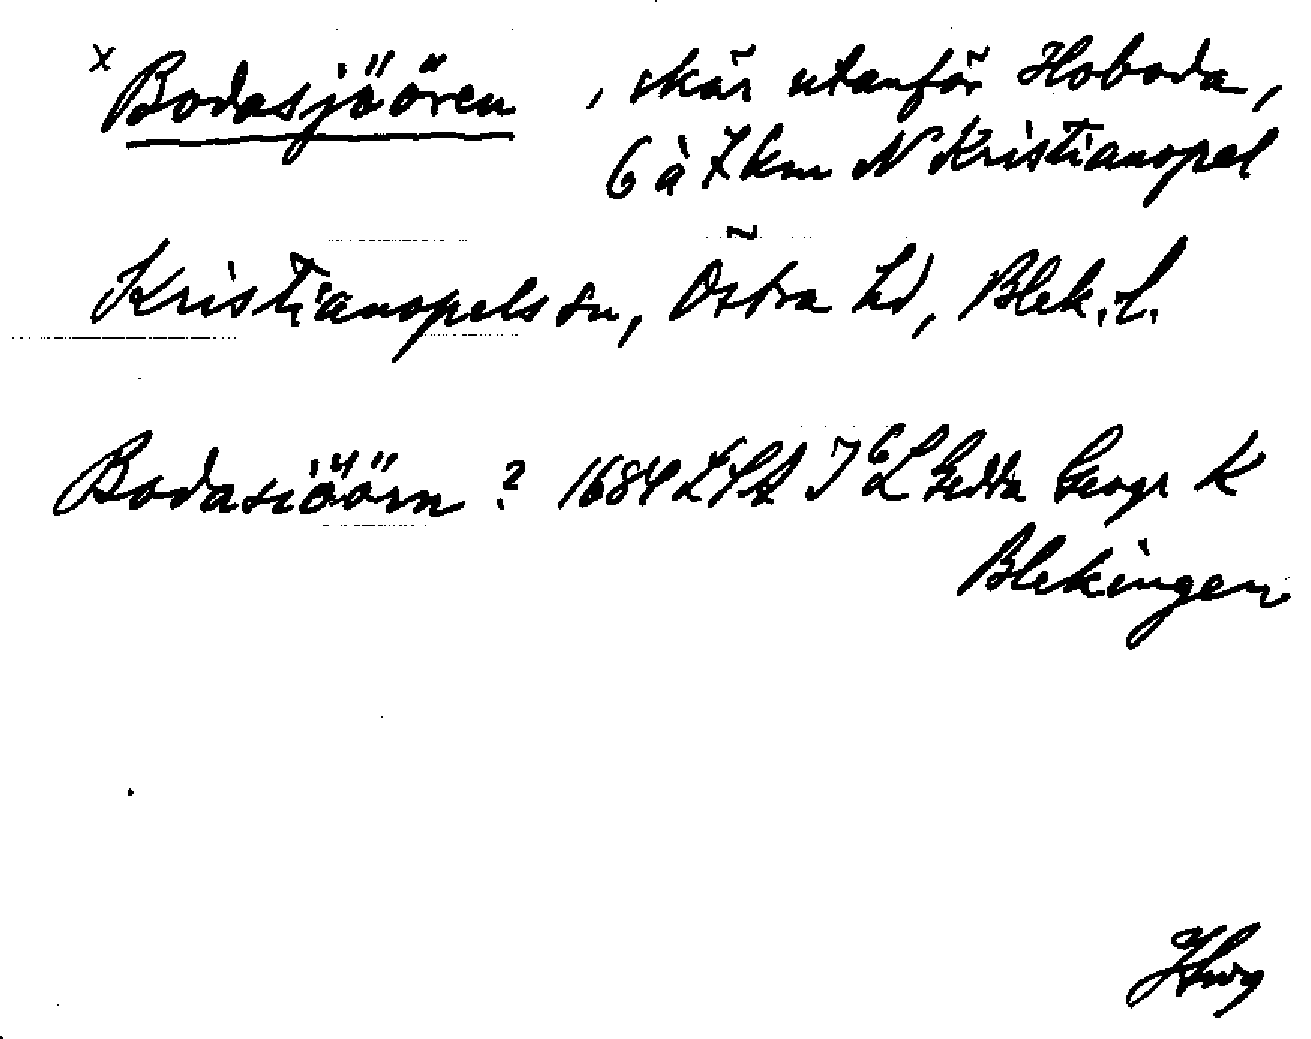 x Bodasjöören , skär utanför Hoboda,
6 à 7 km N Kristianopel
Kristianopels sn, Östra hd, Blek. l.
Bodasiöörn ? 1684 Gedda Geogr K
Blekingen